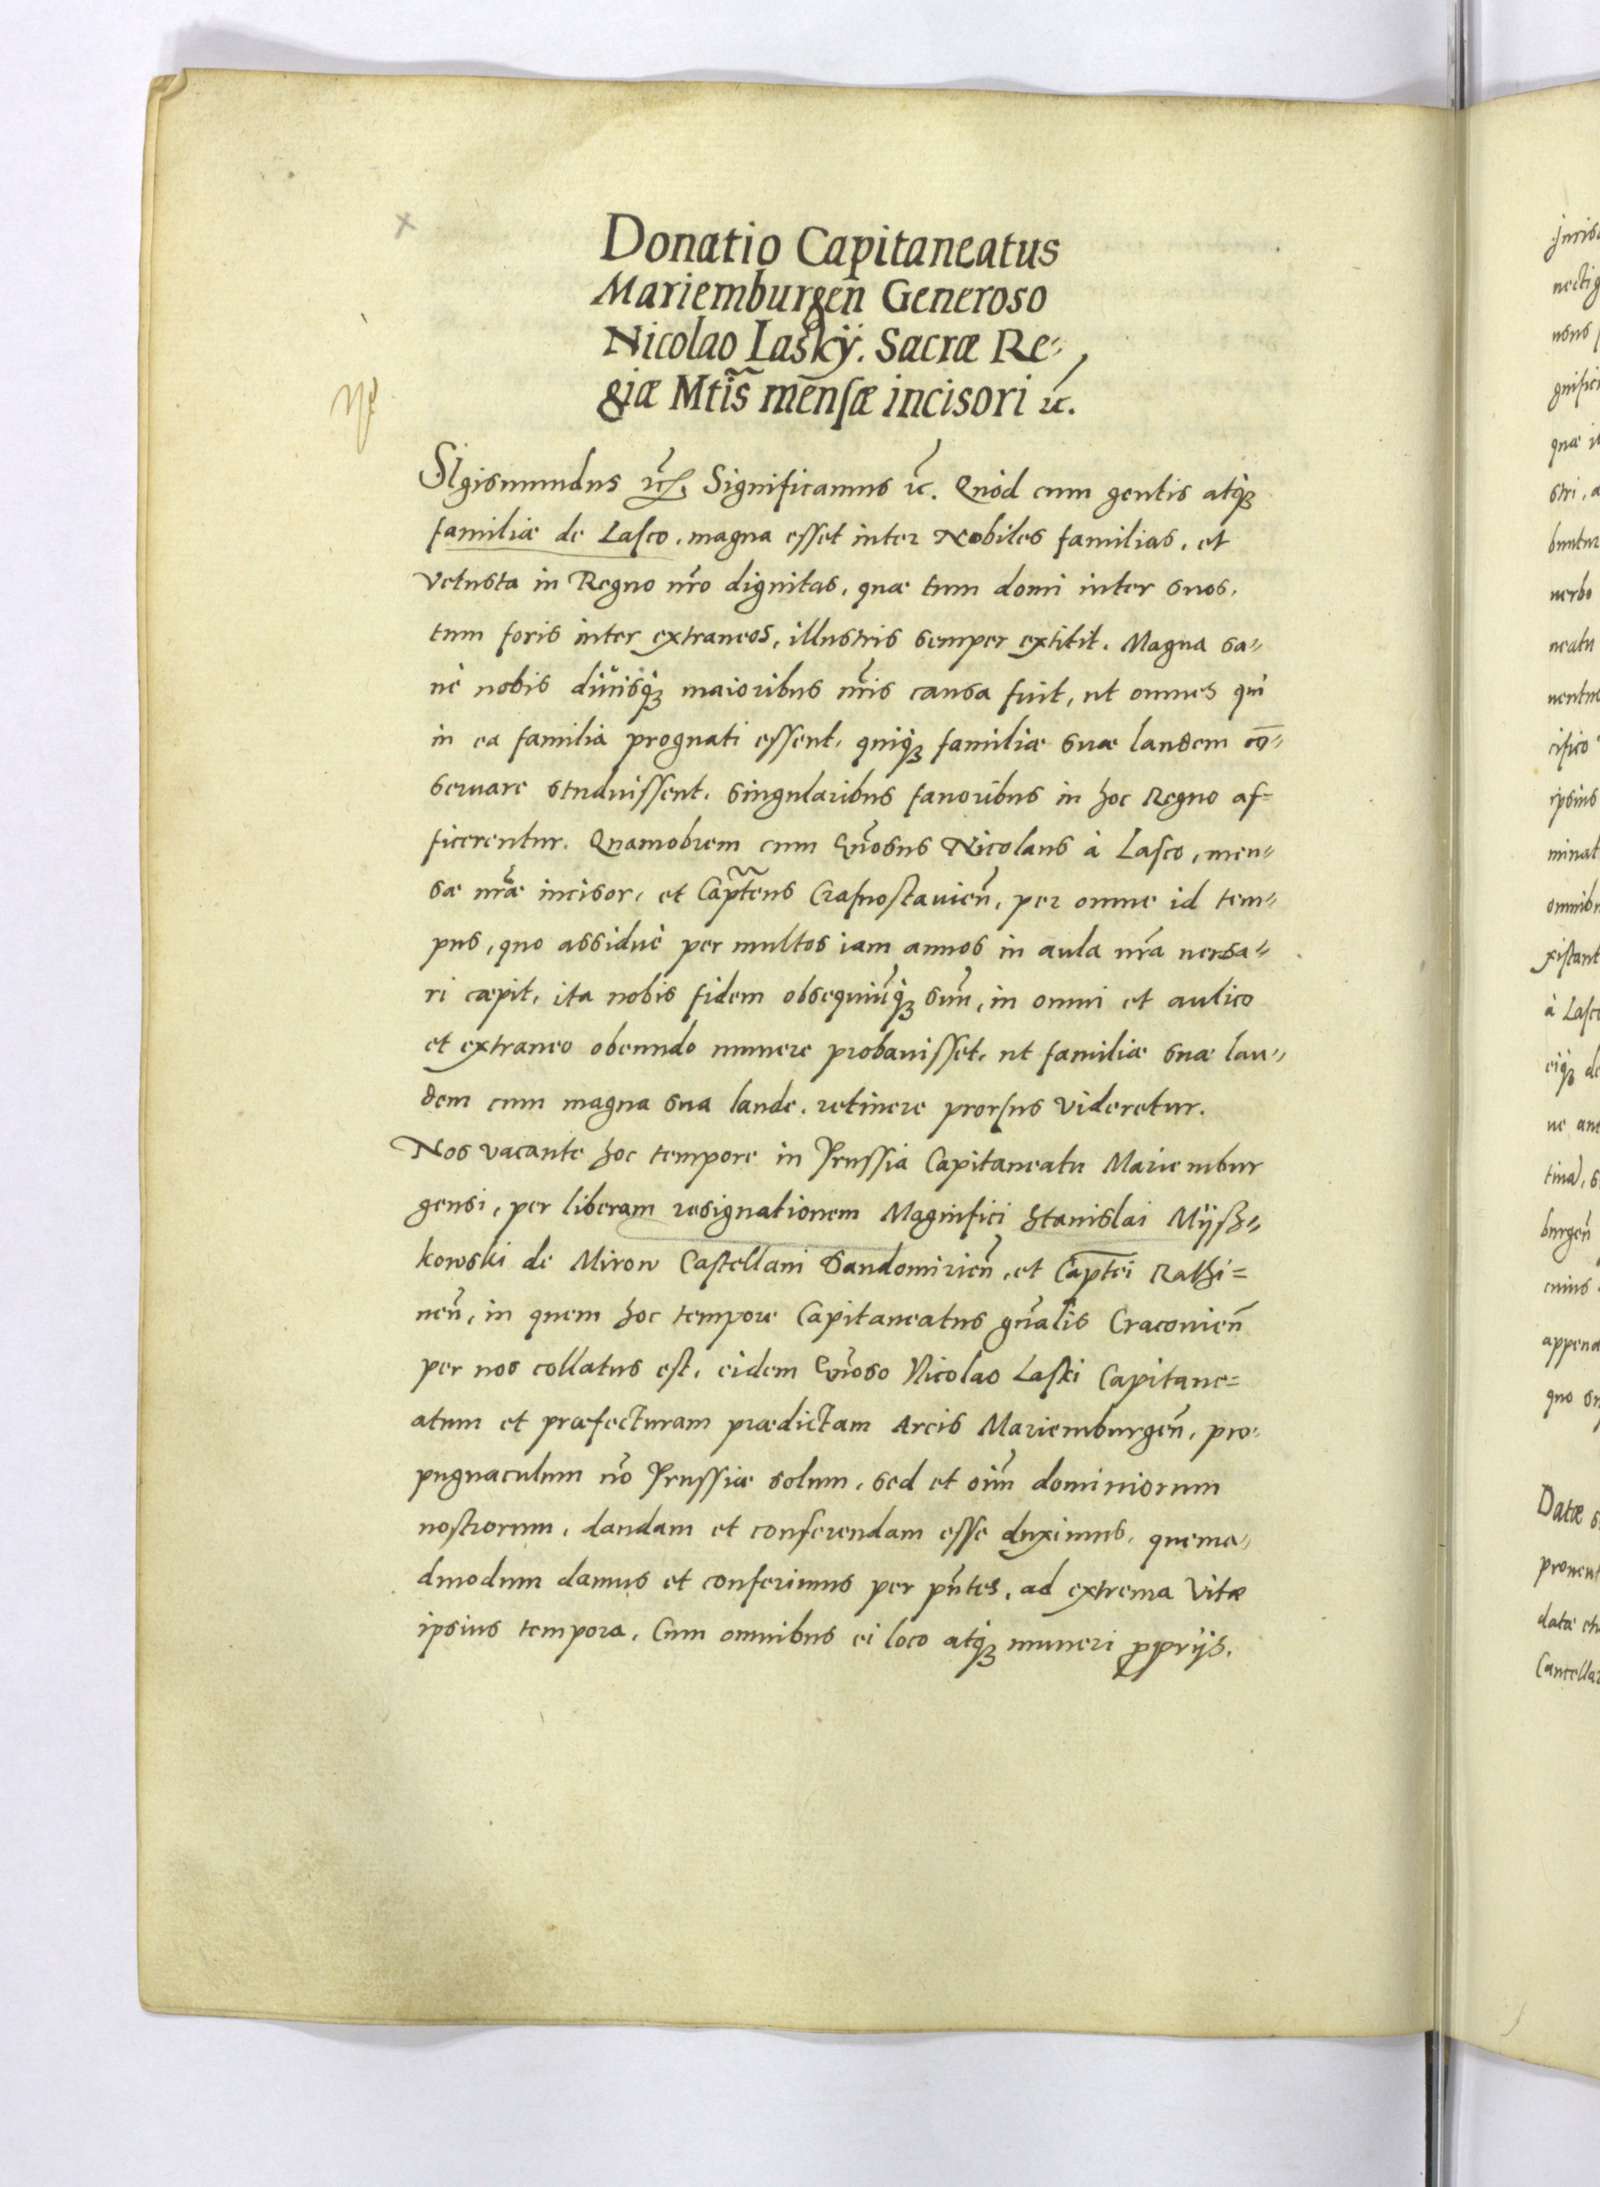 Donatio Capitaneatus
Mariemburgen̄ Generoso
Nicolao Lasky̋. Sacræ Re-
giæ Mtis̃ mensæ incisori ꝛc̃.
SIgismundus ꝛc̃. Significamus ꝛc̃. Quòd cum gentis atqꝫ
familiæ de Lasco, magna esset inter Nobiles familias, et
vetusta in Regno nr̃o dignitas, quæ tum domi inter suos,
tum foris inter extraneos, illustris semper extitit. Magna sa-
nè nobis diuisqꝫ maioribus nr̃is causa fuit, ut omnes qui
in ea familia prognati essent, quiqꝫ familiæ suæ laudem cō-
seruare studuissent, singularibus fauoribus in hoc Regno af-
ficerentur. Quamobrem cum Gñosus Nicolaus à Lasco, men-
sæ nr̃æ incisor, et Capt̃eus Crasnostauien̄, per omne id tem-
pus, quo assiduè per multos iam annos in aula nr̃a uersa-
ri cæpit, ita nobis fidem obsequiūqꝫ suū, in omni et aulico
et extraneo obeundo munere probauisset, ut familiæ suæ lau-
dem cum magna sua laude, retinere prorsus videretur.
Nos vacante hoc tempore in Prussia Capitaneatu Mariembur
gensi, per liberam resignationem Magnifici Stanislai Mÿsz-
kowski de Mirow Castellani Sandomirien̄, et Capt̄ei Rathi-
nen̄, in quem hoc tempore Capitaneatus gñalis Cracouien̄
per nos collatus est, eidem Gñoso Nicolao Laski Capitane-
atum et præfecturam prædictam Arcis Mariemburgen̄, pro-
pugnaculum nō Prussiæ solum, sed et oīm dominiorum
nostrorum, dandam et conferendam esse duximus, quema-
dmodum damus et conferimus per pñtes, ad extrema vitæ
ipsius tempora, Cum omnibus ei loco atqꝫ muneri ꝓprijs,